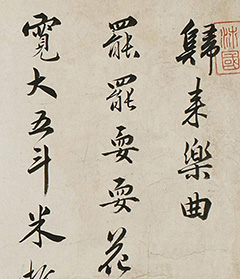 歸来樂曲
罷罷耍耍花
寬大五斗米